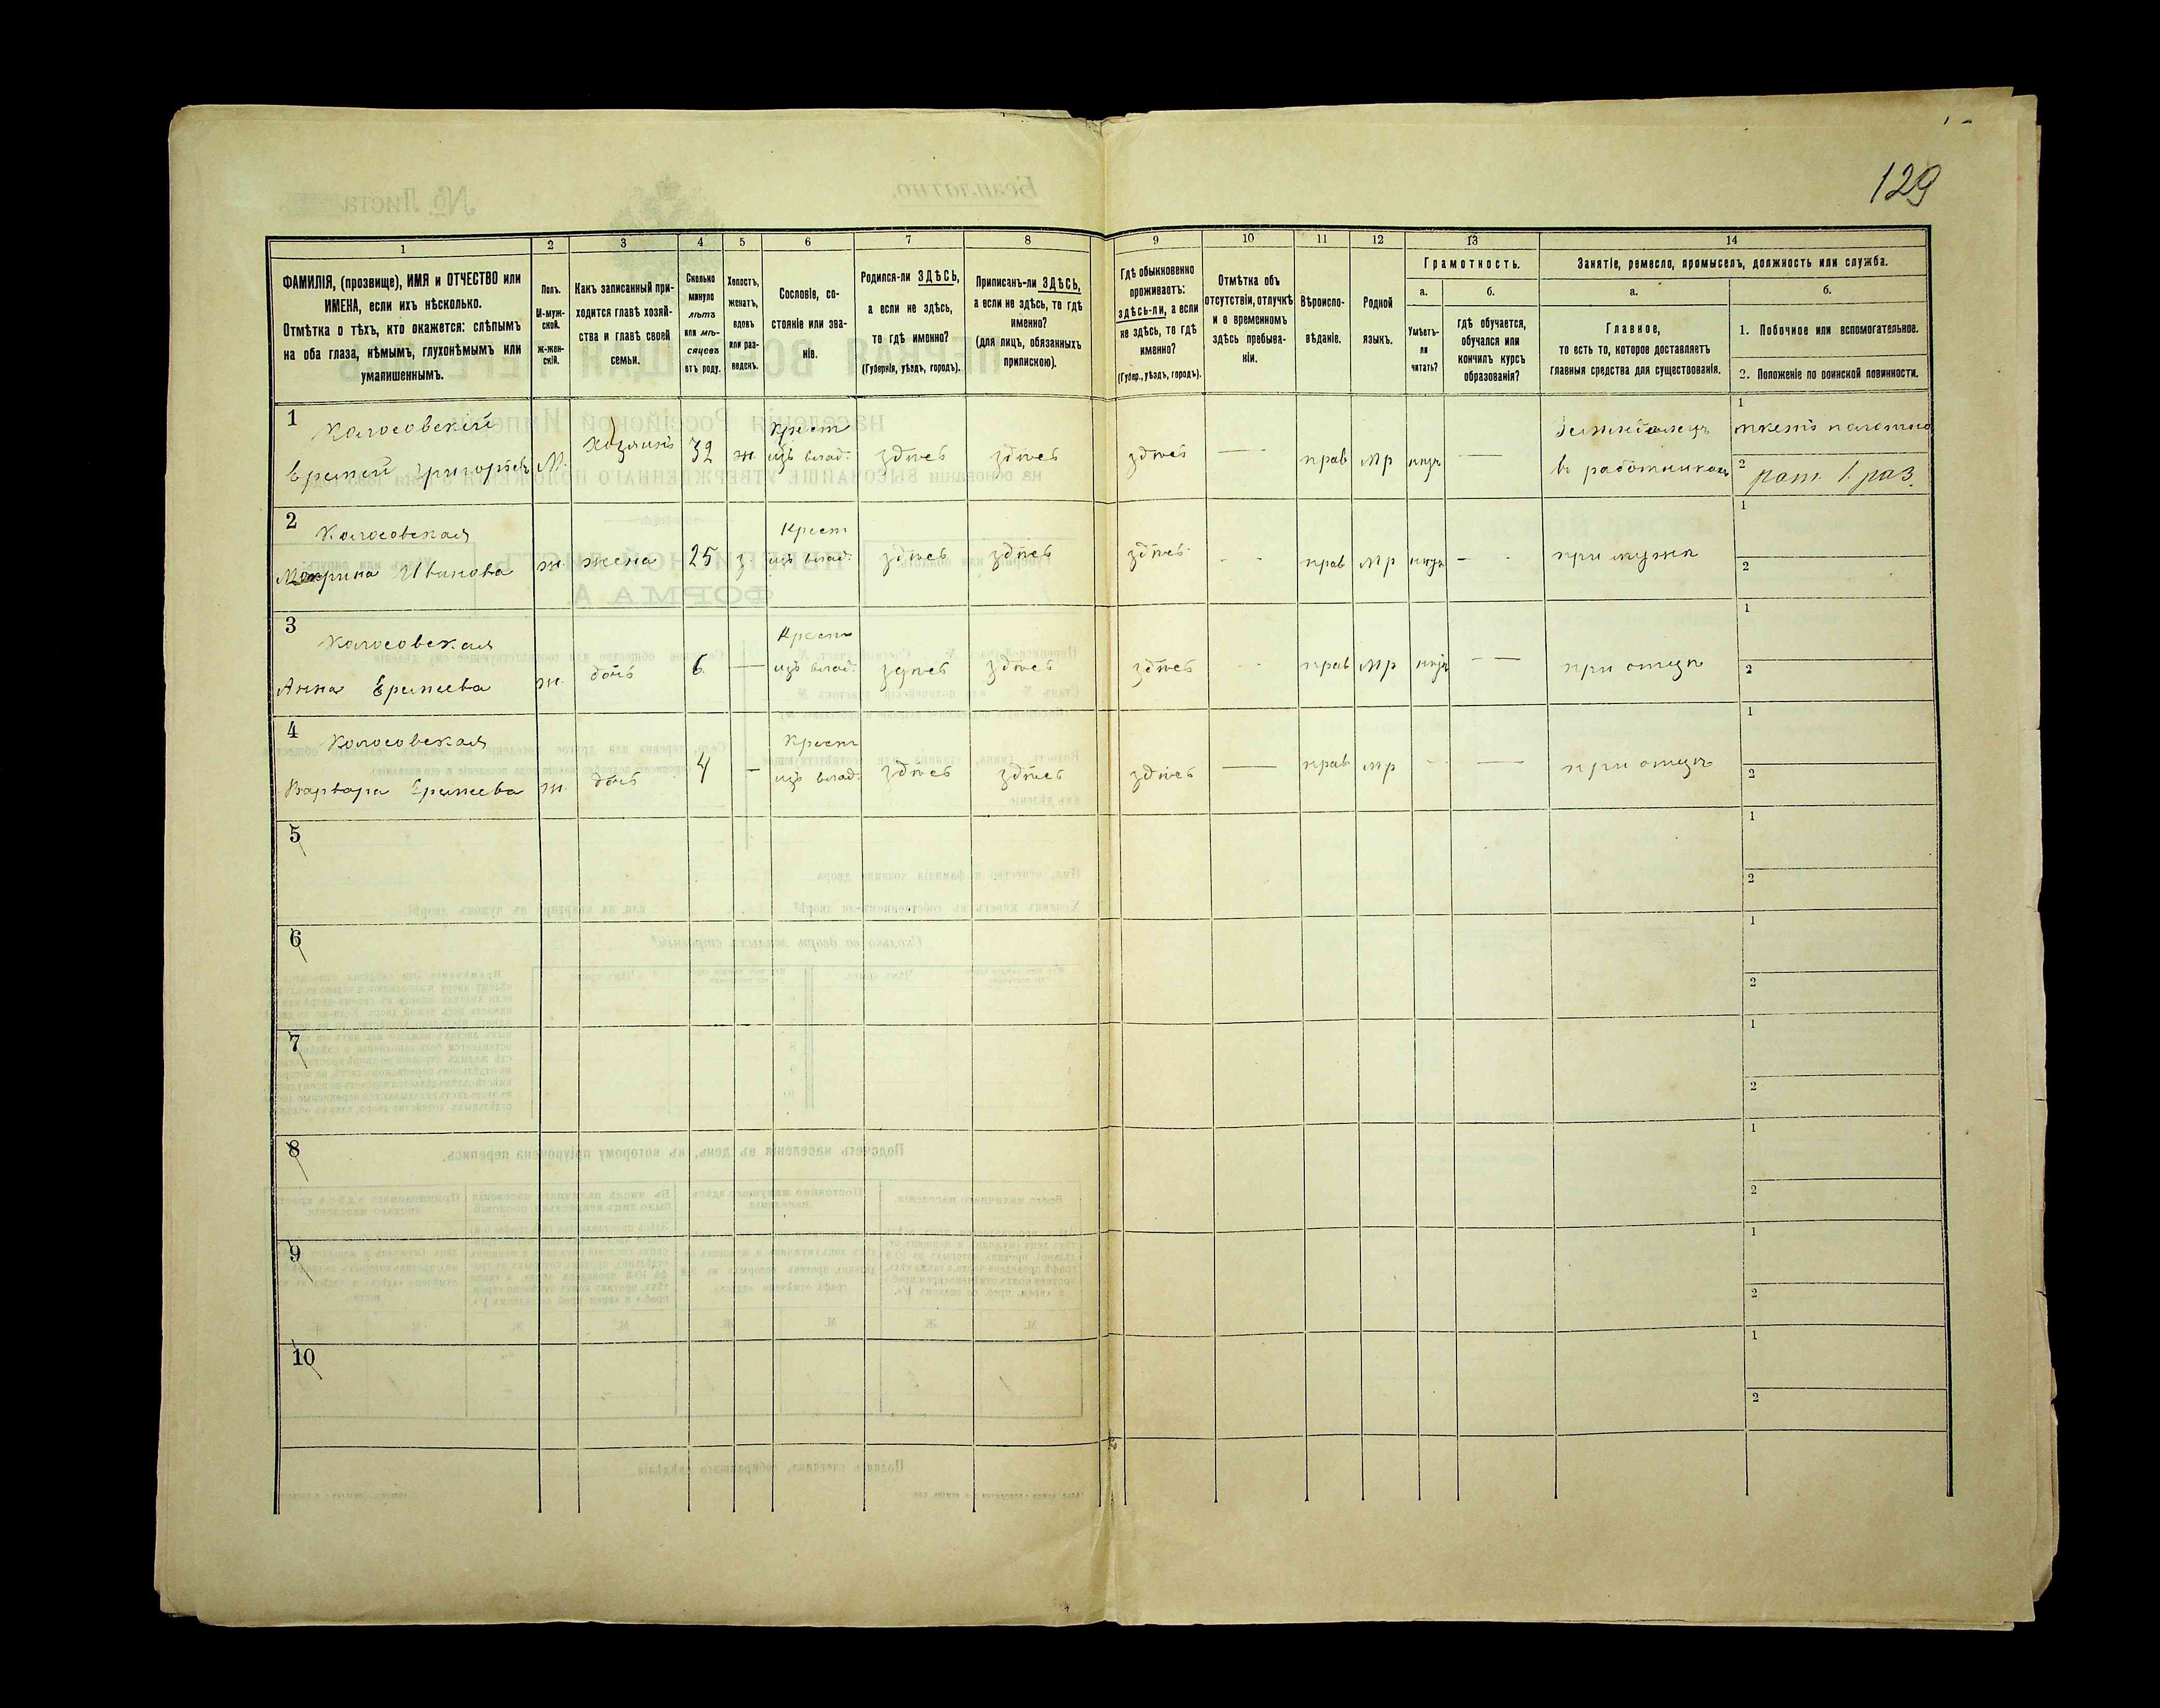 129
1 2 3 4 5 6 7 8 9 10 11 12 13 14
ФАМИЛІЯ, (прозвище), ИМЯ и ОТЧЕСТВО или
ИМЕНА, если ихъ нѣсколько.
Отмѣтка о тѣхъ, кто окажется: слѣпымъ
на оба глаза, нѣмымъ, глухонѣмымъ или
умалишеннымъ.
Полъ.
М-муж-
ской.
Ж-жен-
скій.
Какъ записанный при-
ходится главѣ хозяй-
ства и главѣ своей
семьи.
Сколько
минуло
лѣтъ
или мѣ-
сяцевъ
отъ роду.
Холостъ,
женатъ,
вдовъ
или раз-
веденъ.
Сословіе, со-
стояніе или зва-
ніе.
Родился-ли ЗДѢСЬ,
а если не здѣсь,
то гдѣ именно?
(Губернія, уѣздъ, городъ).
Приписанъ-ли ЗДѢСЬ,
а если не здѣсь, то гдѣ
именно?
(для лицъ, обязанныхъ
припискою).
Гдѣ обыкновенно
проживаетъ:
здѣсь-ли, а если
не здѣсь, то гдѣ
именно?
(Губер., уѣздъ, городъ).
Отмѣтка объ
отсутствіи, отлучкѣ
и о временномъ
здѣсь пребыва-
ніи.
Вѣроиспо-
вѣданіе.
Родной
языкъ.
Грамотность.
а.
Умѣетъ-
ли
читать?
б.
Гдѣ обучается,
обучался или
кончилъ курсъ
образованія?
Занятіе, ремесло, промыселъ, должность или служба.
а.
Главное,
то есть то, которое доставляетъ
главныя средства для существованія.
б.
1. Побочное или вспомогательное.
2. Положеніе по воинской повинности.
1 Колосовскій крест 1
Еремей Григорьевъ М. хозяинъ 32 ж. изъ влад. здѣсь здѣсь здѣсь — прав мр —
въ работникахъ 2 рат. 1. раз.
2 Колосовская крест 1
Ивановa ж. жена 25 з. изъ влад. здѣсь здѣсь здѣсь - - прав мр — - при мужѣ 2
3 Колосовская крест 1
Анна Еремеева ж. дочь 6 — изъ влад. здѣсь здѣсь здѣсь - - прав мр — — при отцѣ 2
4 Колосовская крест 1
Варвара Еремеева ж. дочь 4 - изъ влад. здѣсь здѣсь здѣсь — прав мр - - — при отцѣ 2
5 1
2
6 1
2
7 1
2
8 1
2
9 1
2
10 1
2